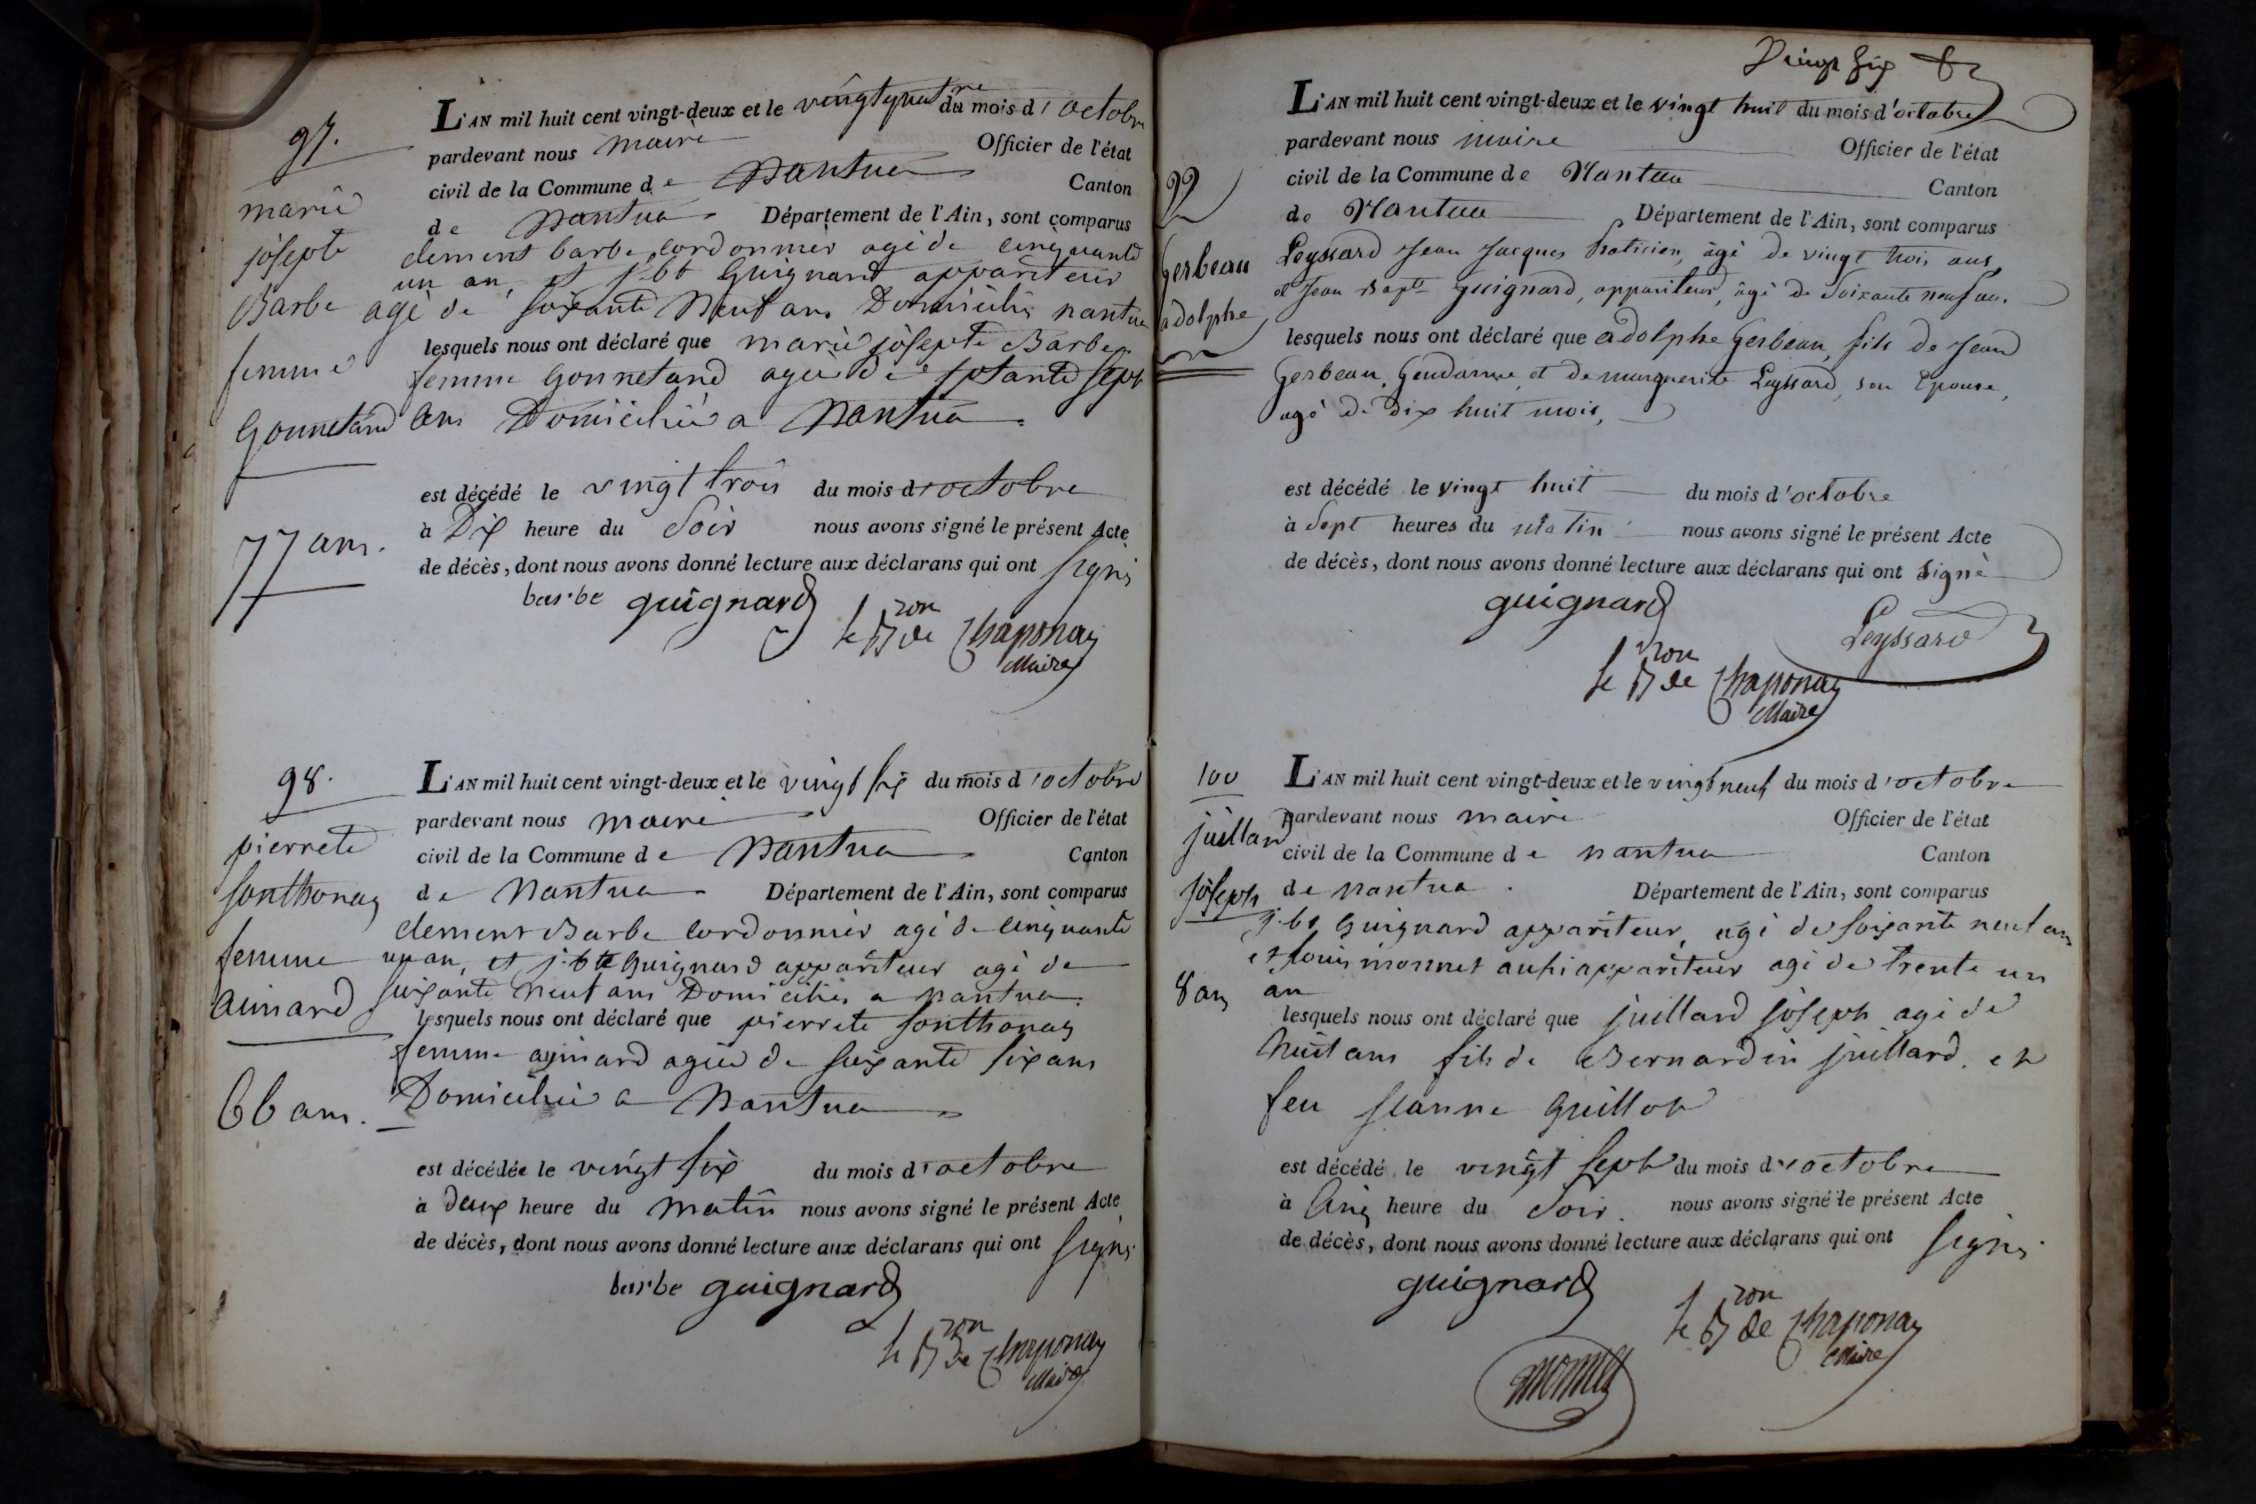 97.
marie
josepte
Barbe
femme
Gonnetand
77 ans.
L'AN mil huit cent vingt-deux et le vingtquatre du mois d'octobre
pardevant nous maire Officier de l'état
civil de la Commune de Nantua Canton
de Nantua Département de l'Ain, sont comparus
clement barbe cordonnier agé de cinquante
un an, et j. bt Guignard appariteur
agé de soixante Neuf ans Domiciliés nantua
lesquels nous ont déclaré que marie josepte Barbe
femme Gonnetand agée de sptante sept
ans Domiciliée a Nantua
est décédé le vingt trois du mois d'octobre
à Dix heure du Soir nous avons signé le présent Acte
de décès, dont nous avons donné lecture aux déclarans qui ont signé
barbe guignard
le Bron de Chaponay
Maire
98.
pierrete
sonthonay
femme
aimard
66 ans.
L'AN mil huit cent vingt-deux et le vingt six du mois d'octobre
pardevant nous maire Officier de l'état
civil de la Commune de Nantua Canton
de Nantua Département de l'Ain, sont comparus
clement Barbe cordonnier agé de cinquante
un an, et j. bte Guignard appariteur agé de
soixante neuf ans Domiciliés a nantua
lesquels nous ont déclaré que pierrete sonthonay
femme aymard agée de soixante six ans
Domiciliée a Nantua
est décédée le vingt six du mois d'octobre
à deux heure du matin nous avons signé le présent Acte
de décès, dont nous avons donné lecture aux déclarans qui ont signé
barbe guignard
le Bron de Chaponay
Maire
Vingt six
99
Gerbeau
adolphe
L'AN mil huit cent vingt-deux et le vingt huit du mois d'octobre
pardevant nous maire Officier de l'état
civil de la Commune de Nantua Canton
de Nantua Département de l'Ain, sont comparus
Leyssard Jean Jacques Praticien, âgé de vingt trois ans,
et Jean Bapte Guignard, appariteur, âgé de Soixante neuf ans.
lesquels nous ont déclaré que adolphe Gerbeau, fils de Jean
Gerbeau, Gendarme, et de marguerite Leyssard, son Epouse,
agé de dix huit mois,
est décédé le vingt huit du mois d'octobre
à Sept heures du matin nous avons signé le présent Acte
de décès, dont nous avons donné lecture aux déclarans qui ont signé
guignard
Leyssard
le Bron de Chaponay
Maire
100
juillard
joseph
8 ans
L'AN mil huit cent vingt-deux et le vingt neuf du mois d'octobre
pardevant nous maire Officier de l'état
civil de la Commune de nantua Canton
de nantua. Département de l'Ain, sont comparus
j. bt Guignard appariteur, agé de soixante neuf ans
et louis monnet aussi appariteur agé de trente un
an
lesquels nous ont déclaré que juillard joseph agé de
huit ans fils de Bernardin juillard. et
feu jeanne Guillot
est décédé le vingt sept du mois d'octobre
à Cinq heure du Soir. nous avons signé le présent Acte
de décès, dont nous avons donné lecture aux déclarans qui ont signé
guignard
le Bron de Chaponay
Maire
monnet